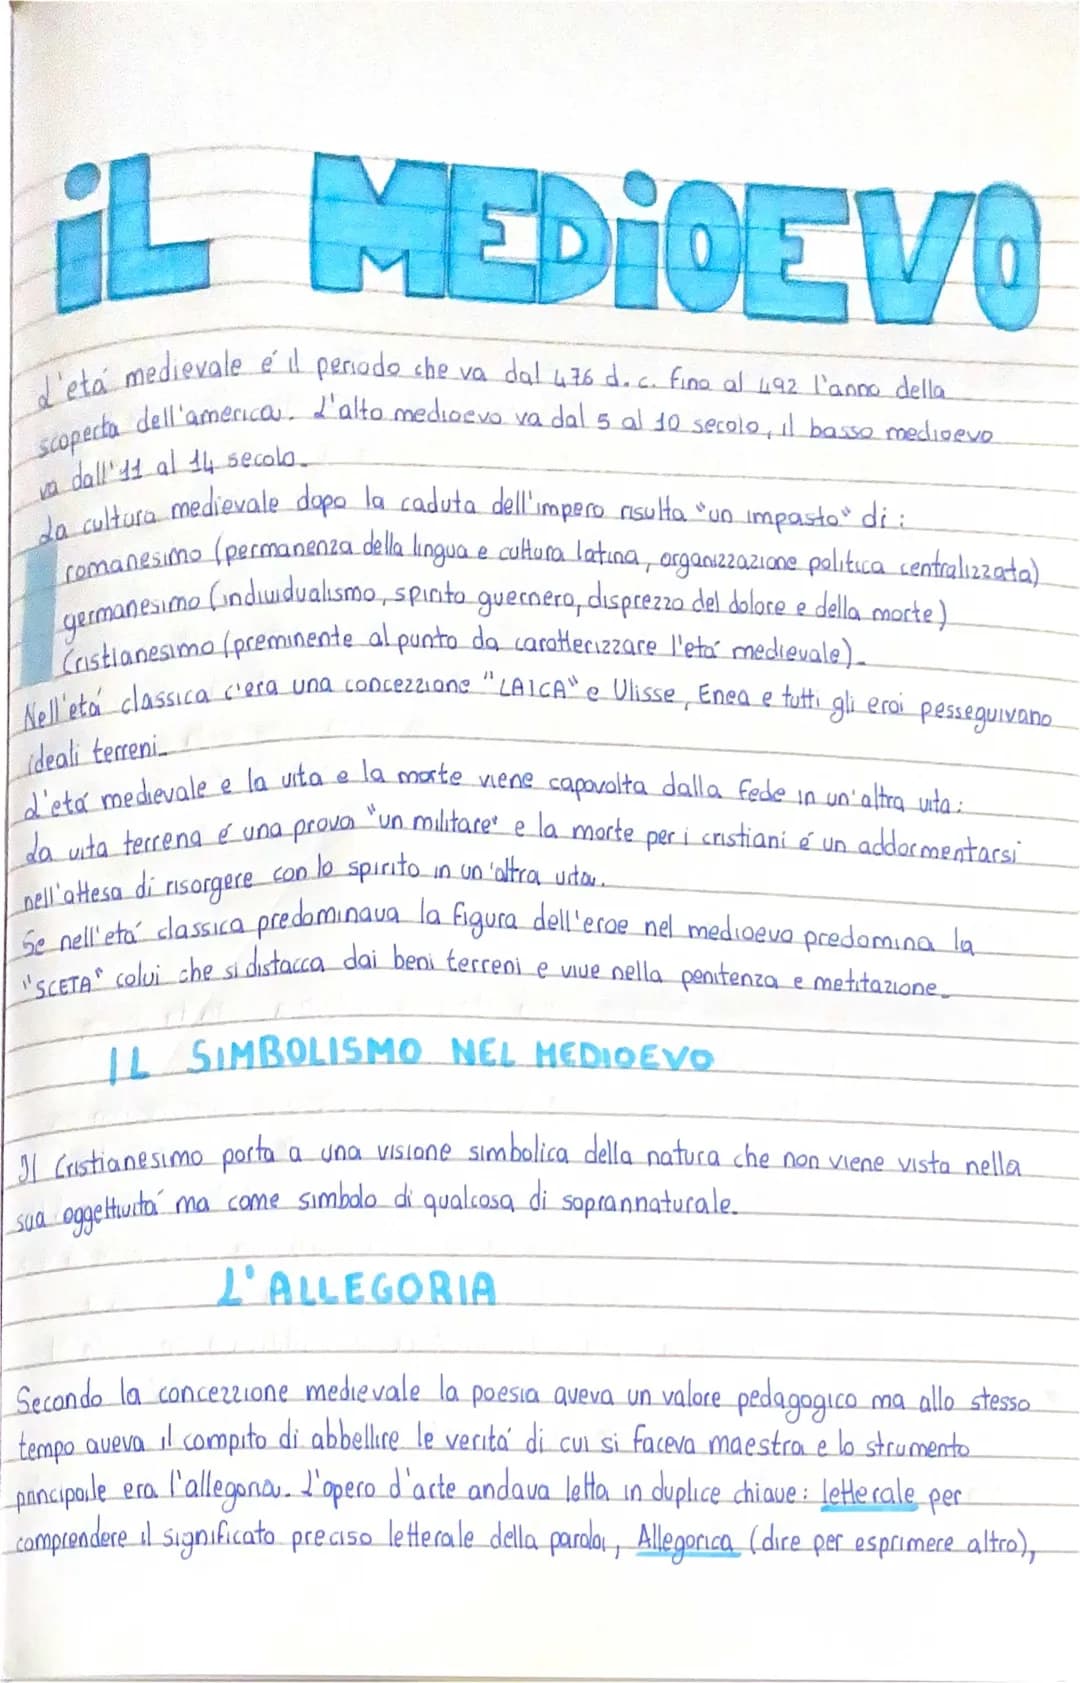 iL MEDiOEVO
L'etá medievale é il periodo che va dal 476 d.c. fino al 492 l'anno della
scoperta dell'america. L'alto medioevo va dal 5 al 10 secolo, il basso medioevo
va dall'11 al 14 secolo.
La cultura medievale dopo la caduta dell'impero risulta "un impasto" di:
romanesimo (permanenza della lingua e cultura latina, organizzazione politica centralizzata)
germanesimo (individualismo, spirito guernero, disprezzo del dolore e della morte)
Cristianesimo (preminente al punto da caratterizzare l'etá medievale).
Nell'etá classica c'era una concezzione "LAICA" e Ulisse, Enea e tutti gli eroi pesseguivano
ideali terreni.
L'etá medievale e la vita e la morte viene capovolta dalla fede in un'altra vita:
La vita terrena é una prova "un militare" e la morte per i cristiani é un addormentarsi
nell'attesa di risorgere con lo spirito in un'altra vita.
Se nell'etá classica predominava la figura dell'eroe nel medioevo predomina la
"SCETA" colui che si distacca dai beni terreni e vive nella penitenza e metitazione.
IL SIMBOLISMO NEL MEDIOEVO
Il Cristianesimo porta a una visione simbolica della natura che non viene vista nella
sua oggettivitá ma come simbolo di qualcosa di soprannaturale.
L'ALLEGORIA
Secondo la concezzione medievale la poesia aveva un valore pedagogico ma allo stesso
tempo aveva il compito di abbellire le veritá di cui si faceva maestra e lo strumento
principale era l'allegoria. L'opero d'arte andava letta in duplice chiave: letterale per
comprendere il significato preciso letterale della parola, Allegorica (dire per esprimere altro),